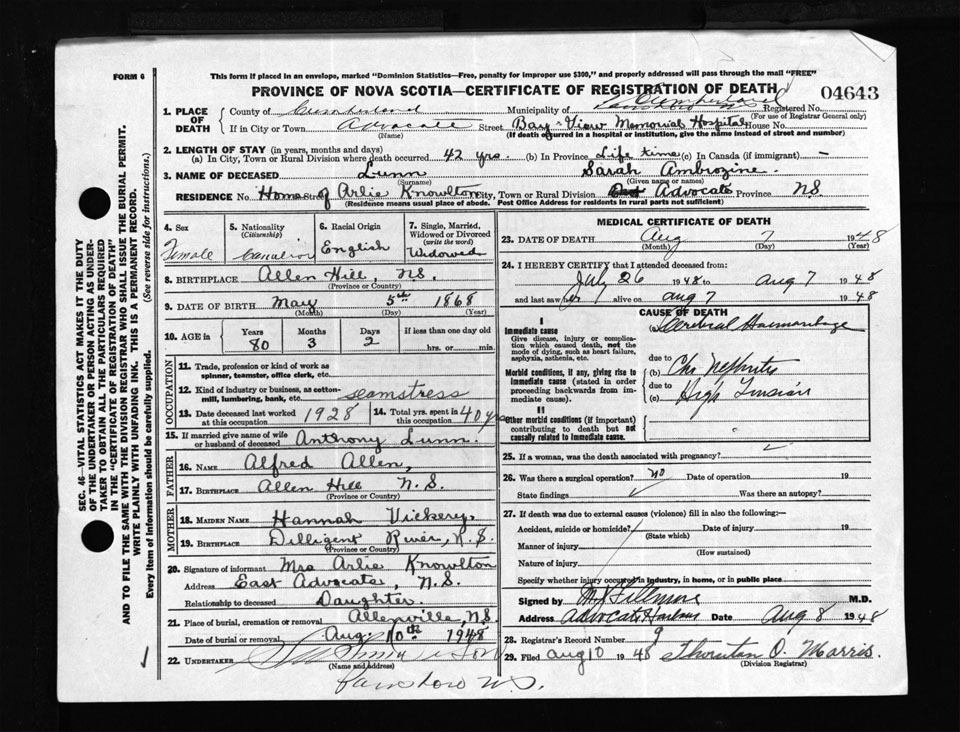 FORM 6
This form if placed in an envelope, marked "Dominion Statistics—Free, penalty for improper use $300," and properly addressed will pass through the mail "FREE"
PROVINCE OF NOVA SCOTIA—CERTIFICATE OF REGISTRATION OF DEATH
04643
1. PLACE OF DEATH
County of Cumberland Municipality of Cumberland Registered No.
(For use of Registrar General only)
If in City or Town Advocate Street Bay-View Memorial Hospital House No.
(Name) (If death occurred in a hospital or institution, give the name instead of street and number)
2. LENGTH OF STAY (in years, months and days)
(a) In City, Town or Rural Division where death occurred 42 yrs. (b) In Province Life time (c) In Canada (if immigrant) —
3. NAME OF DECEASED Lunn Sarah Ambrozine
(Surname) (Given name or names)
RESIDENCE No. Home Street of Arlie Knowlton City, Town or Rural Division Advocate Province N.S
(Residence means usual place of abode. Post Office Address for residents in rural parts not sufficient)
4. Sex Female
5. Nationality (Citizenship) Canadian
6. Racial Origin English
7. Single, Married, Widowed or Divorced (write the word) Widowed
8. BIRTHPLACE Allen Hill, N.S.
(Province or Country)
9. DATE OF BIRTH May 5th 1868
(Month) (Day) (Year)
10. AGE in Years 80 Months 3 Days 2 If less than one day old hrs. or min.
OCCUPATION
11. Trade, profession or kind of work as spinner, teamster, office clerk, etc.
12. Kind of industry or business, as cotton-mill, lumbering, bank, etc. seamstress
13. Date deceased last worked at this occupation 1928
14. Total yrs. spent in this occupation 40 yrs
15. If married give name of wife or husband of deceased Anthony Lunn.
FATHER
16. NAME Alfred Allen,
17. BIRTHPLACE Allen Hill N.S.
(Province or Country)
MOTHER
18. MAIDEN NAME Hannah Vickery,
19. BIRTHPLACE Dilligent River, N.S.
(Province or Country)
20. Signature of informant Mrs Arlie Knowlton
Address East Advocate, N.S.
Relationship to deceased Daughter.
21. Place of burial, cremation or removal Allenville, N.S.
Date of burial or removal Aug. 10th 1948
22. UNDERTAKER & Son
(Name and address)
Parrsboro N.S.
MEDICAL CERTIFICATE OF DEATH
23. DATE OF DEATH Aug 7 1948
(Month) (Day) (Year)
24. I HEREBY CERTIFY that I attended deceased from:
July 26 1948 to Aug 7 1948
and last saw her alive on Aug 7 1948
CAUSE OF DEATH
I
Immediate cause
Give disease, injury or complication which caused death, not the mode of dying, such as heart failure, asphyxia, asthenia, etc.
(a) Cerebral Haemorrhage
due to
Morbid conditions, if any, giving rise to immediate cause (stated in order proceeding backwards from immediate cause).
(b) Chr Nephritis
due to
(c) High Tension
II
Other morbid conditions (if important) contributing to death but not causally related to immediate cause.
25. If a woman, was the death associated with pregnancy?
26. Was there a surgical operation? no Date of operation 19
State findings Was there an autopsy?
27. If death was due to external causes (violence) fill in also the following:—
Accident, suicide or homicide? Date of injury 19
(State which)
Manner of injury
(How sustained)
Nature of injury
Specify whether injury occurred in industry, in home, or in public place
Signed by M. J. Fillmore M.D.
Address Advocate Harbour Date Aug 8 1948
28. Registrar's Record Number 9
29. Filed Aug 10 1948 Thornton O. Morris.
(Division Registrar)
SEC. 46—VITAL STATISTICS ACT MAKES IT THE DUTY
OF THE UNDERTAKER OR PERSON ACTING AS UNDERTAKER
TO OBTAIN ALL THE PARTICULARS REQUIRED
IN THE "CERTIFICATE OF REGISTRATION OF DEATH"
AND TO FILE THE SAME WITH THE DIVISION REGISTRAR WHO SHALL ISSUE THE BURIAL PERMIT.
WRITE PLAINLY WITH UNFADING INK. THIS IS A PERMANENT RECORD.
Every item of information should be carefully supplied. (See reverse side for instructions.)